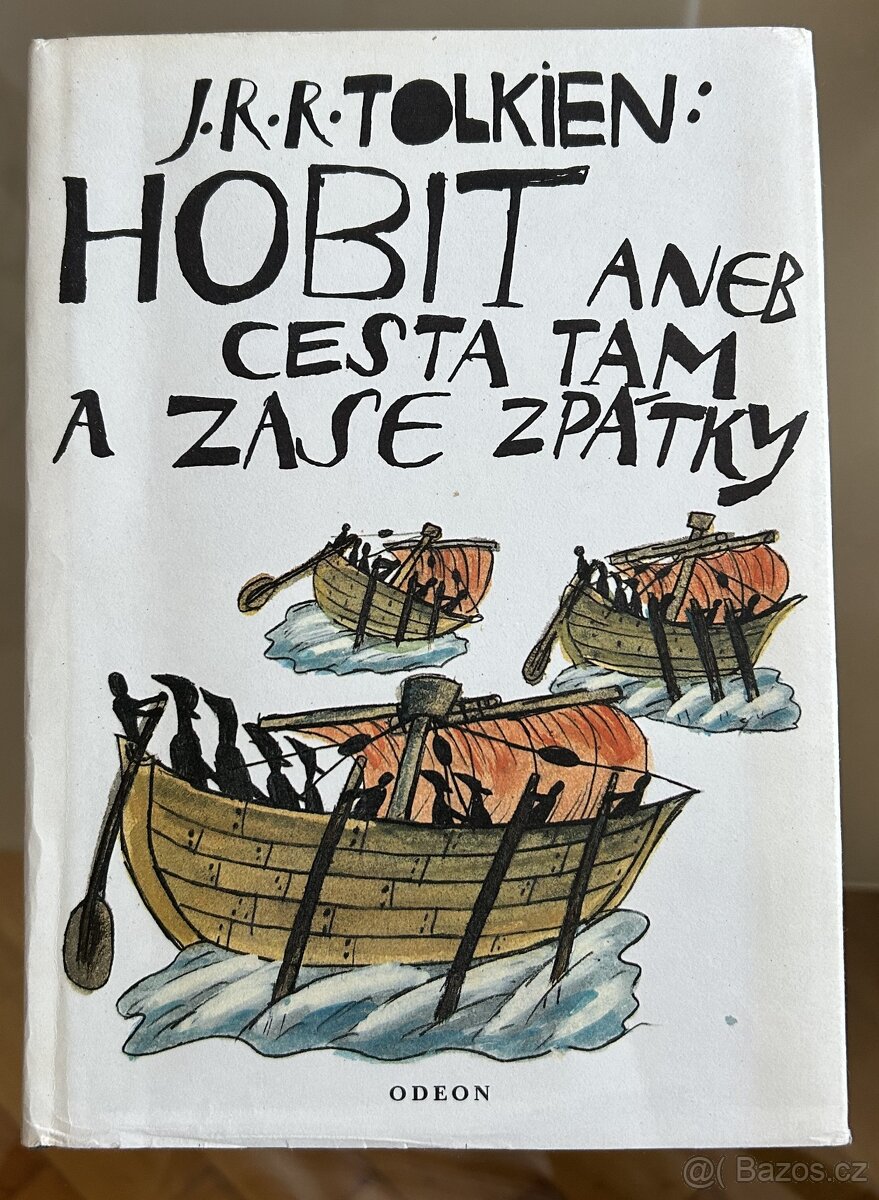 J.R.R.TOLKIEN:
HOBIT ANEB
CESTA TAM
A ZASE ZPÁTKY
ODEON
@( Bazos.cz